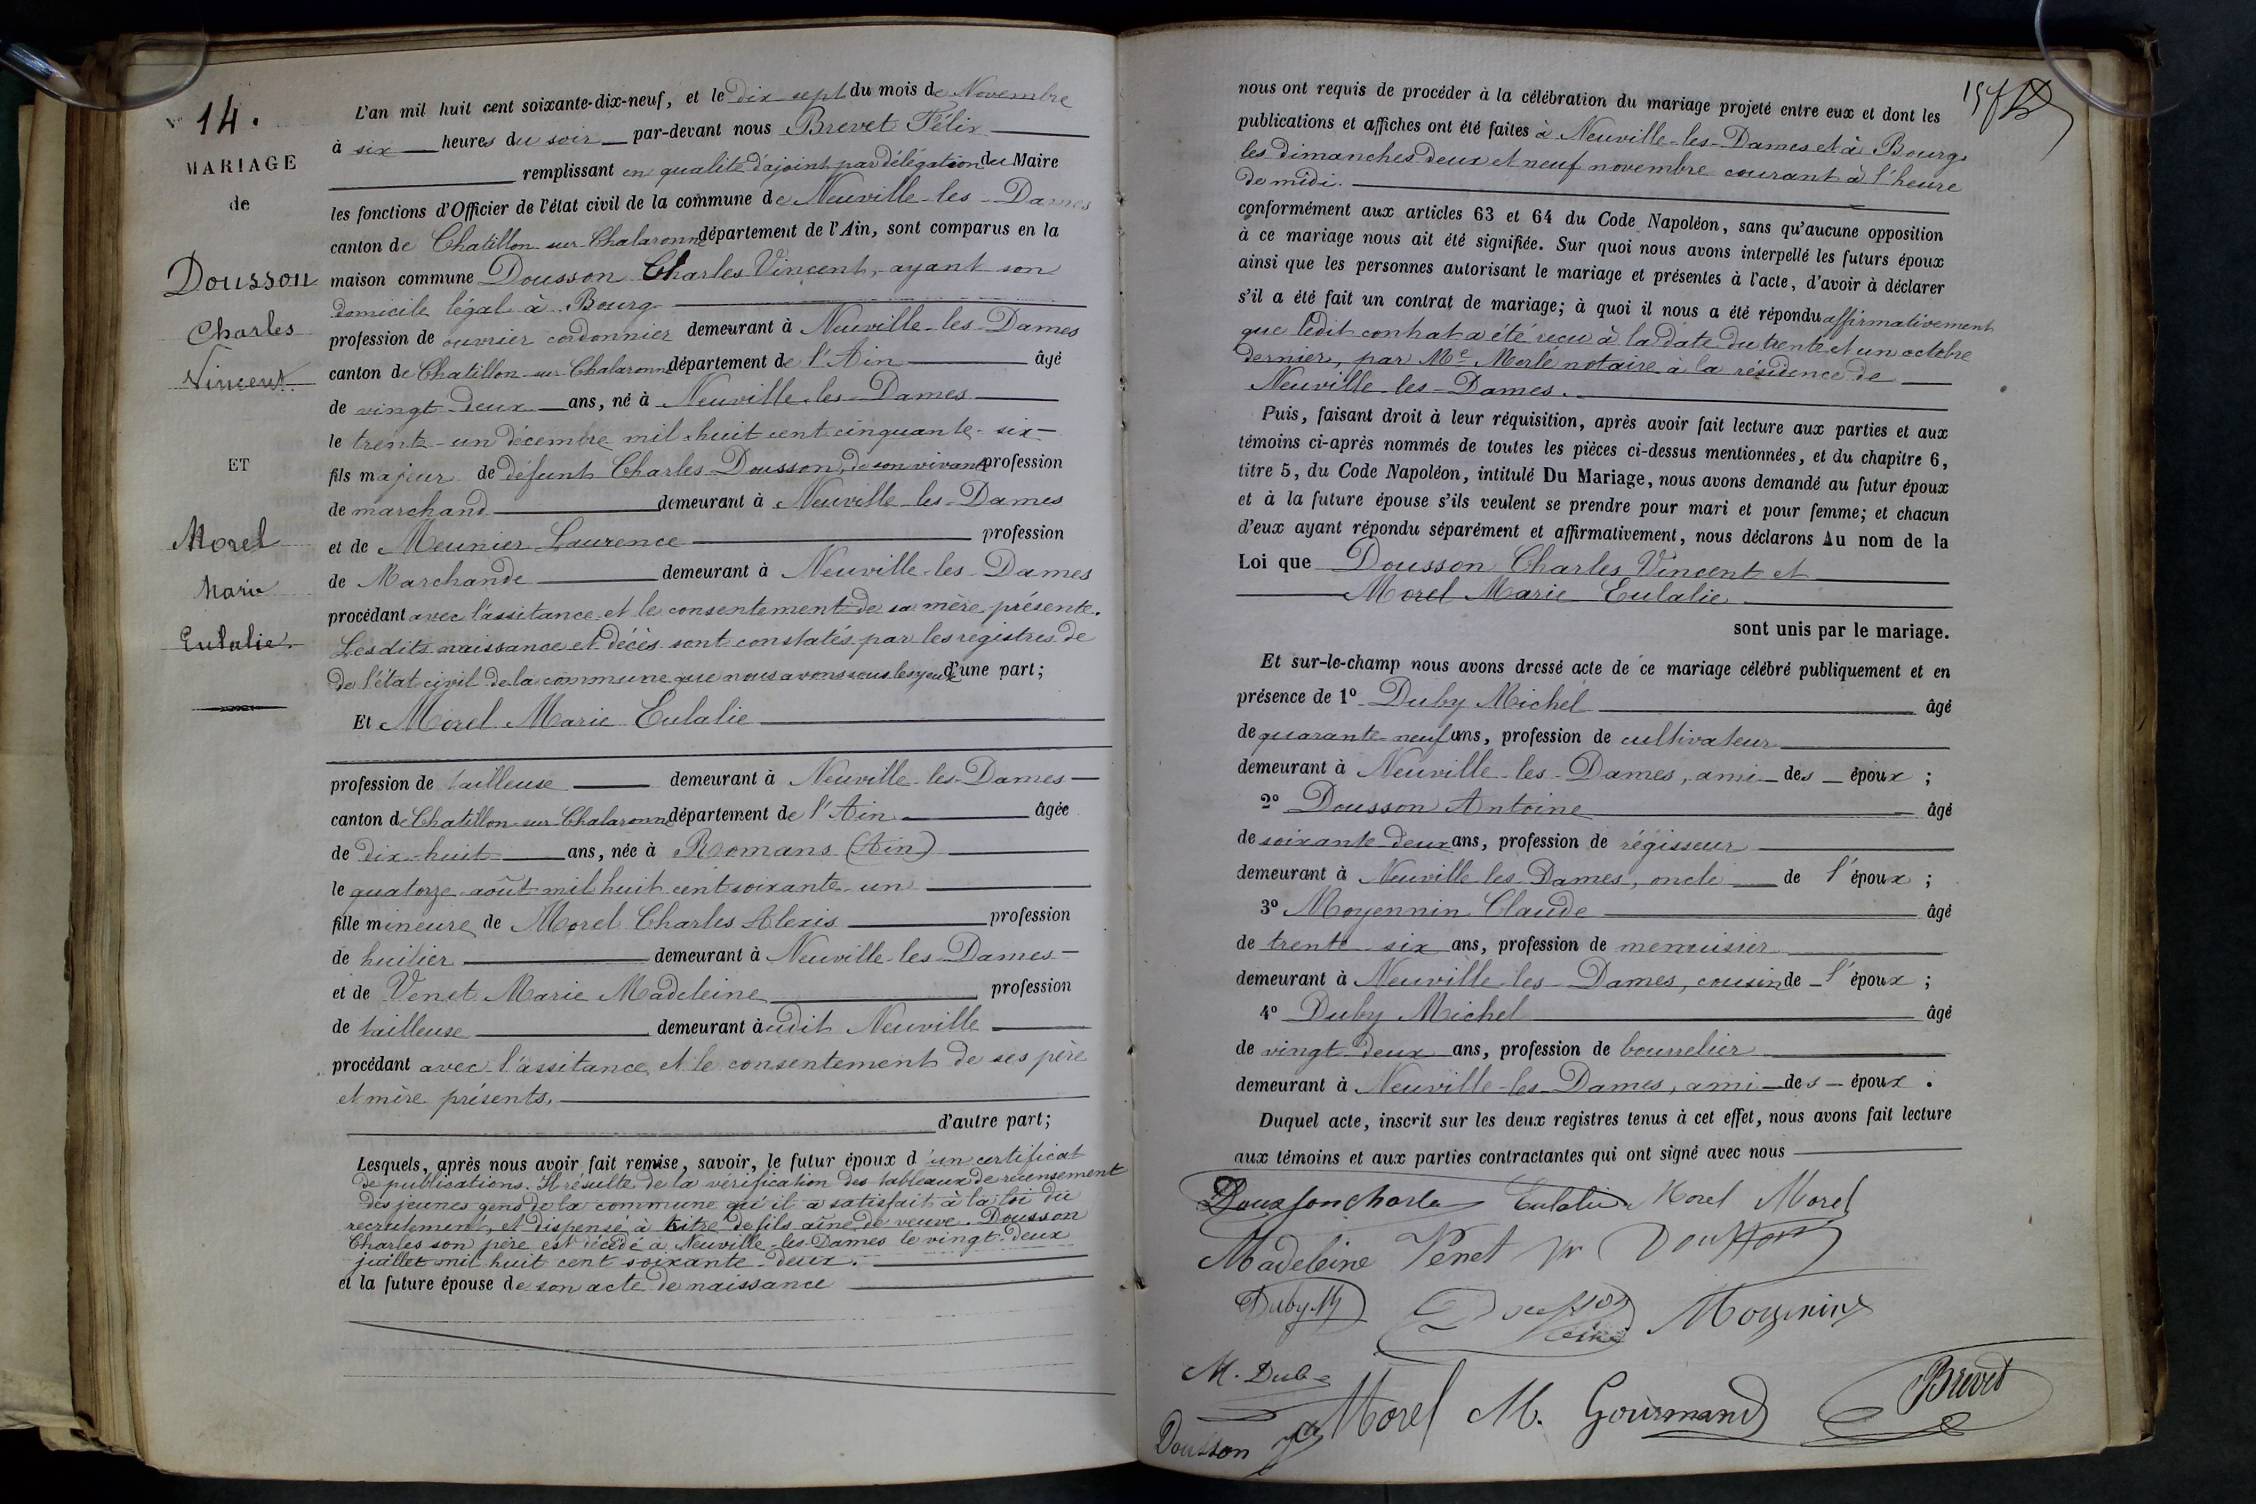 N° 14.
MARIAGE
de
Dousson
Charles
Vincent
ET
Morel
Marie
Eulalie
L'an mil huit cent soixante-dix-neuf, et le dix sept du mois de Novembre
à six heures du soir par-devant nous Brevet Félix
remplissant en qualité d'ajoint par délégation du Maire
les fonctions d'Officier de l'état civil de la commune de Neuville-les-Dames
canton de Chatillon-sur-Chalaronne département de l'Ain, sont comparus en la
maison commune Dousson Charles Vincent, ayant son
domicile légal à Bourg
profession de ouvrier cordonnier demeurant à Neuville-les-Dames
canton de Chatillon-sur-Chalaronne département de l'Ain âgé
de vingt-deux ans, né à Neuville-les-Dames
le trente-un décembre mil huit cent cinquante-six
fils majeur de défunt Charles Dousson, de son vivant profession
de marchand demeurant à Neuville-les-Dames
et de Meunier Laurence profession
de Marchande demeurant à Neuville-les-Dames
procédant avec l'assitance et le consentement de sa mère présente.
Lesdits naissance et décès sont constatés par les registres de
de l'état civil de la commune que nous avons sous les yeux d'une part;
Et Morel Marie Eulalie
profession de tailleuse demeurant à Neuville-les-Dames
canton de Chatillon-sur-Chalaronne département de l'Ain âgée
de dix-huit ans, née à Romans (Ain)
le quatorze août mil huit cent soixante-un
fille mineure de Morel Charles Alexis profession
de huilier demeurant à Neuville-les-Dames
et de Venet Marie Madeleine profession
de tailleuse demeurant àudit Neuville
procédant avec l'assitance et le consentement de ses père
et mère présents.
d'autre part;
Lesquels, après nous avoir fait remise, savoir, le futur époux d'un certificat
de publications. Il résulte de la vérification des tableaux de recensement
des jeunes gens de la commune qu'il a satisfait à la loi du
recrutement, et dispensé à titre de fils aîné de veuve. Dousson
Charles son père est décédé à Neuville-les-Dames le vingt-deux
juillet mil huit cent soixante-deux.
et la future épouse de son acte de naissance
nous ont requis de procéder à la célébration du mariage projeté entre eux et dont les
publications et affiches ont été faites à Neuville-les-Dames et à Bourg
les dimanches deux et neuf novembre courant à l'heure
de midi.
conformément aux articles 63 et 64 du Code Napoléon, sans qu'aucune opposition
à ce mariage nous ait été signifiée. Sur quoi nous avons interpellé les futurs époux
ainsi que les personnes autorisant le mariage et présentes à l'acte, d'avoir à déclarer
s'il a été fait un contrat de mariage; à quoi il nous a été répondu affirmativement
que ledit contrat a été reçu à la date du trente et un octobre
dernier, par Me Merle notaire à la résidence de
Neuville-les-Dames.
Puis, faisant droit à leur réquisition, après avoir fait lecture aux parties et aux
témoins ci-après nommés de toutes les pièces ci-dessus mentionnées, et du chapitre 6,
titre 5, du Code Napoléon, intitulé Du Mariage, nous avons demandé au futur époux
et à la future épouse s'ils veulent se prendre pour mari et pour femme; et chacun
d'eux ayant répondu séparément et affirmativement, nous déclarons Au nom de la
Loi que Dousson Charles Vincent et
Morel Marie Eulalie
sont unis par le mariage.
Et sur-le-champ nous avons dressé acte de ce mariage célébré publiquement et en
présence de 1° Duby Michel âgé
de quarante-neuf ans, profession de cultivateur
demeurant à Neuville-les-Dames, ami des époux;
2° Dousson Antoine âgé
de soixante-deux ans, profession de régisseur
demeurant à Neuville-les-Dames, oncle de l'époux;
3° Moyennin Claude âgé
de trente-six ans, profession de menuisier
demeurant à Neuville-les-Dames, cousin de l'époux;
4° Duby Michel âgé
de vingt-deux ans, profession de bourrelier
demeurant à Neuville-les-Dames, ami des époux.
Duquel acte, inscrit sur les deux registres tenus à cet effet, nous avons fait lecture
aux témoins et aux parties contractantes qui ont signé avec nous
Dousson Charles Eulalie Morel Morel
Madeleine Venet Dousson
Duby M
M. Duby
Morel M. Gourmand Brevet
Dousson